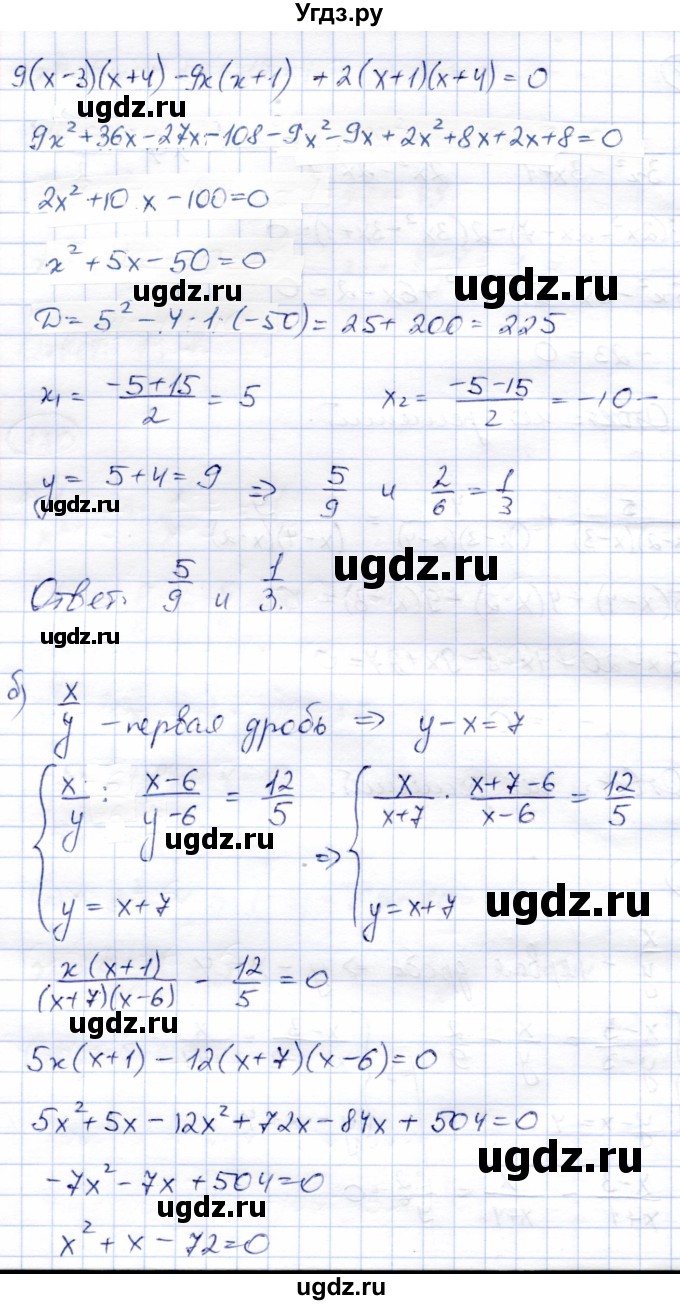 Угдз.ру
9(x-3)(x+4) - 9x(x+1) + 2(x+1)(x+4) = 0
ugdz.ru
9x² + 36x - 27x - 108 - 9x² - 9x + 2x² + 8x + 2x + 8 = 0
2x² + 10x - 100 = 0
x² + 5x - 50 = 0
ugdz.ru ugdz.ru
D = 5² - 4·1·(-50) = 25 + 200 = 225
x₁ = (-5+15)/2 = 5 x₂ = (-5-15)/2 = -10 -
y = 5 + 4 = 9 ⇒ 5/9 и 2/6 = 1/3
ugdz.ru
ugdz.ru
Ответ: 5/9 и 1/3.
ugdz.ru
б) x/y - первая дробь ⇒ y - x = 7
{ x/y : (x-6)/(y-6) = 12/5 ⇒ { x/(x+7) · (x+7-6)/(x-6) = 12/5
ugdz.ru
y = x + 7 y = x + 7
ugdz.ru
x(x+1)/((x+7)(x-6)) - 12/5 = 0
ugdz.ru
5x(x+1) - 12(x+7)(x-6) = 0
5x² + 5x - 12x² + 72x - 84x + 504 = 0
ugdz.ru
-7x² - 7x + 504 = 0
ugdz.ru
x² + x - 72 = 0
ugdz.ru